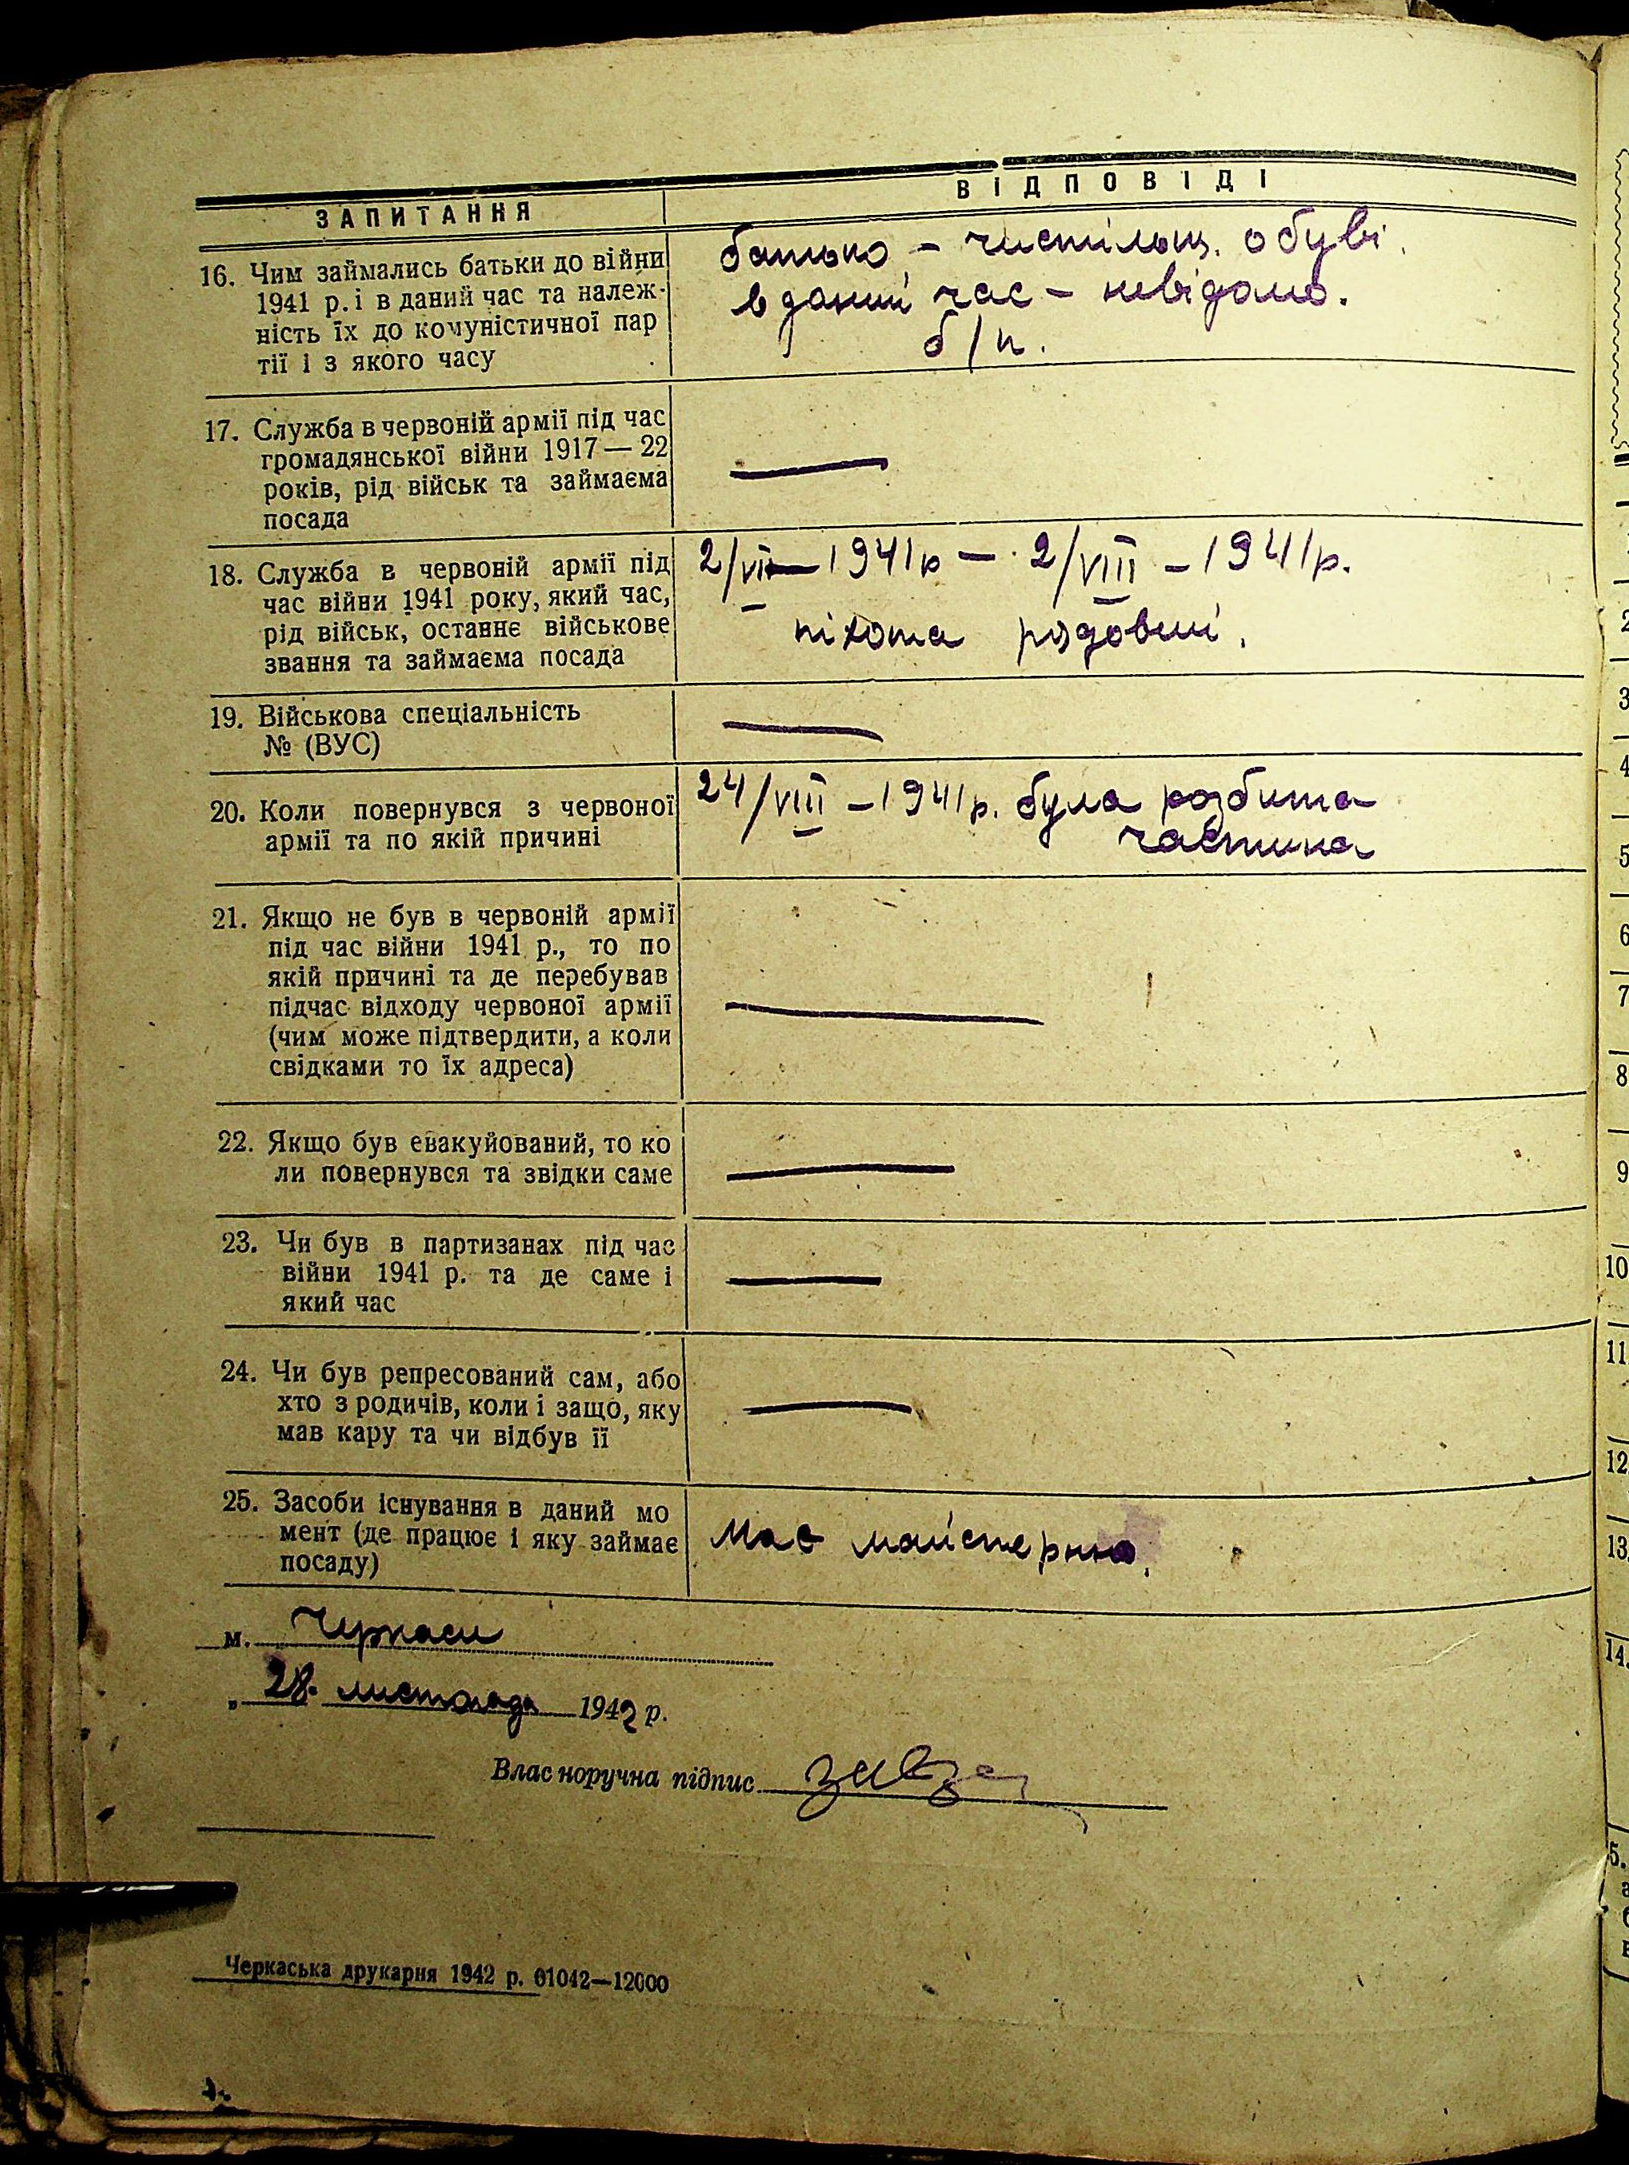 ЗАПИТАННЯ
ВІДПОВІДІ
16. Чим займались батьки до війни
1941 р. і в даний час та належ-
ність їх до комуністичної пар
тії і з якого часу
батько - чистільщ. обуві.
в даний час - невідомо.
б/п.
17. Служба в червоній армії під час
громадянської війни 1917 — 22
років, рід військ та займаєма
посада
18. Служба в червоній армії під
час війни 1941 року, який час,
рід військ, останнє військове
звання та займаєма посада
2/VII - 1941р - 2/VIII - 1941р.
піхота рядовий.
19. Військова спеціальність
№ (ВУС)
20. Коли повернувся з червоної
армії та по якій причині
24/VIII - 1941р. була розбита
частина
21. Якщо не був в червоній армії
під час війни 1941 р., то по
якій причині та де перебував
підчас відходу червоної армії
(чим може підтвердити, а коли
свідками то їх адреса)
22. Якщо був евакуйований, то ко
ли повернувся та звідки саме
23. Чи був в партизанах під час
війни 1941 р. та де саме і
який час
24. Чи був репресований сам, або
хто з родичів, коли і защо, яку
мав кару та чи відбув її
25. Засоби існування в даний мо
мент (де працює і яку займає
посаду)
Має майстерню.
м. Черкаси
„28. листопада 1942 р.
Власноручна підпис
Черкаська друкарня 1942 р. 01042—12000
2
3
4
5
6
7
8
9
10
11
12
13.
14.
5.